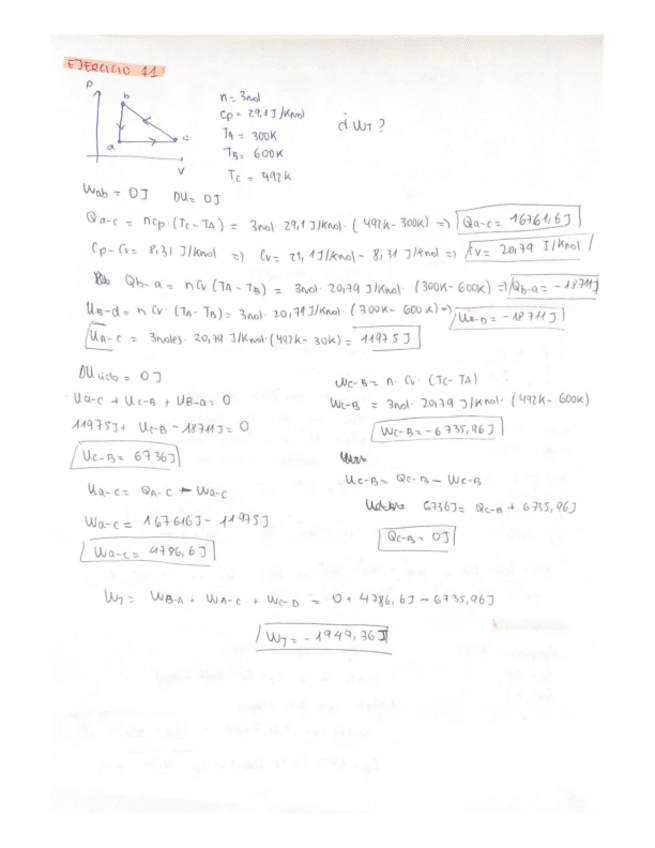 EJERCICIO 11
P
b
a
c
V
n = 3mol
Cp = 29,1 J/Kmol
TA = 300K
TB = 600K
Tc = 492K
¿ WT ?
Wab = 0J   DU = 0J
Qa-c = n Cp · (Tc - TA) = 3mol · 29,1 J/Kmol · ( 492K - 300K ) => Qa-c = 16761,6J
Cp - Cv = 8,31 J/Kmol => Cv = 29,1 J/Kmol - 8,31 J/Kmol => Cv = 20,79 J/Kmol
Qb-a = n Cv (TA - TB) = 3mol · 20,79 J/Kmol · (300K - 600K) => Qb-a = -18711J
UB-a = n Cv · (TA - TB) = 3mol · 20,79 J/Kmol · (300K - 600K) => UB-D = -18711J
UA-c = 3moles · 20,79 J/Kmol · (492K - 30K) = 11975J
DU ciclo = 0J
Ua-c + Uc-B + UB-a = 0
11975J + Uc-B - 18711J = 0
Uc-B = 6736J
Ua-c = QA-c - Wa-c
Wa-c = 167616J - 11975J
Wa-c = 4786,6J
Wc-B = n · Cv · (Tc - TA)
Wc-B = 3mol · 20,79 J/Kmol · (492K - 600K)
Wc-B = -6735,96J
Uc-B = Qc-B - Wc-B
6736J = Qc-B + 6735,96J
Qc-B = 0J
WT = WB-A + WA-c + Wc-D = 0 + 4786,6J - 6735,96J
WT = -1949,36J